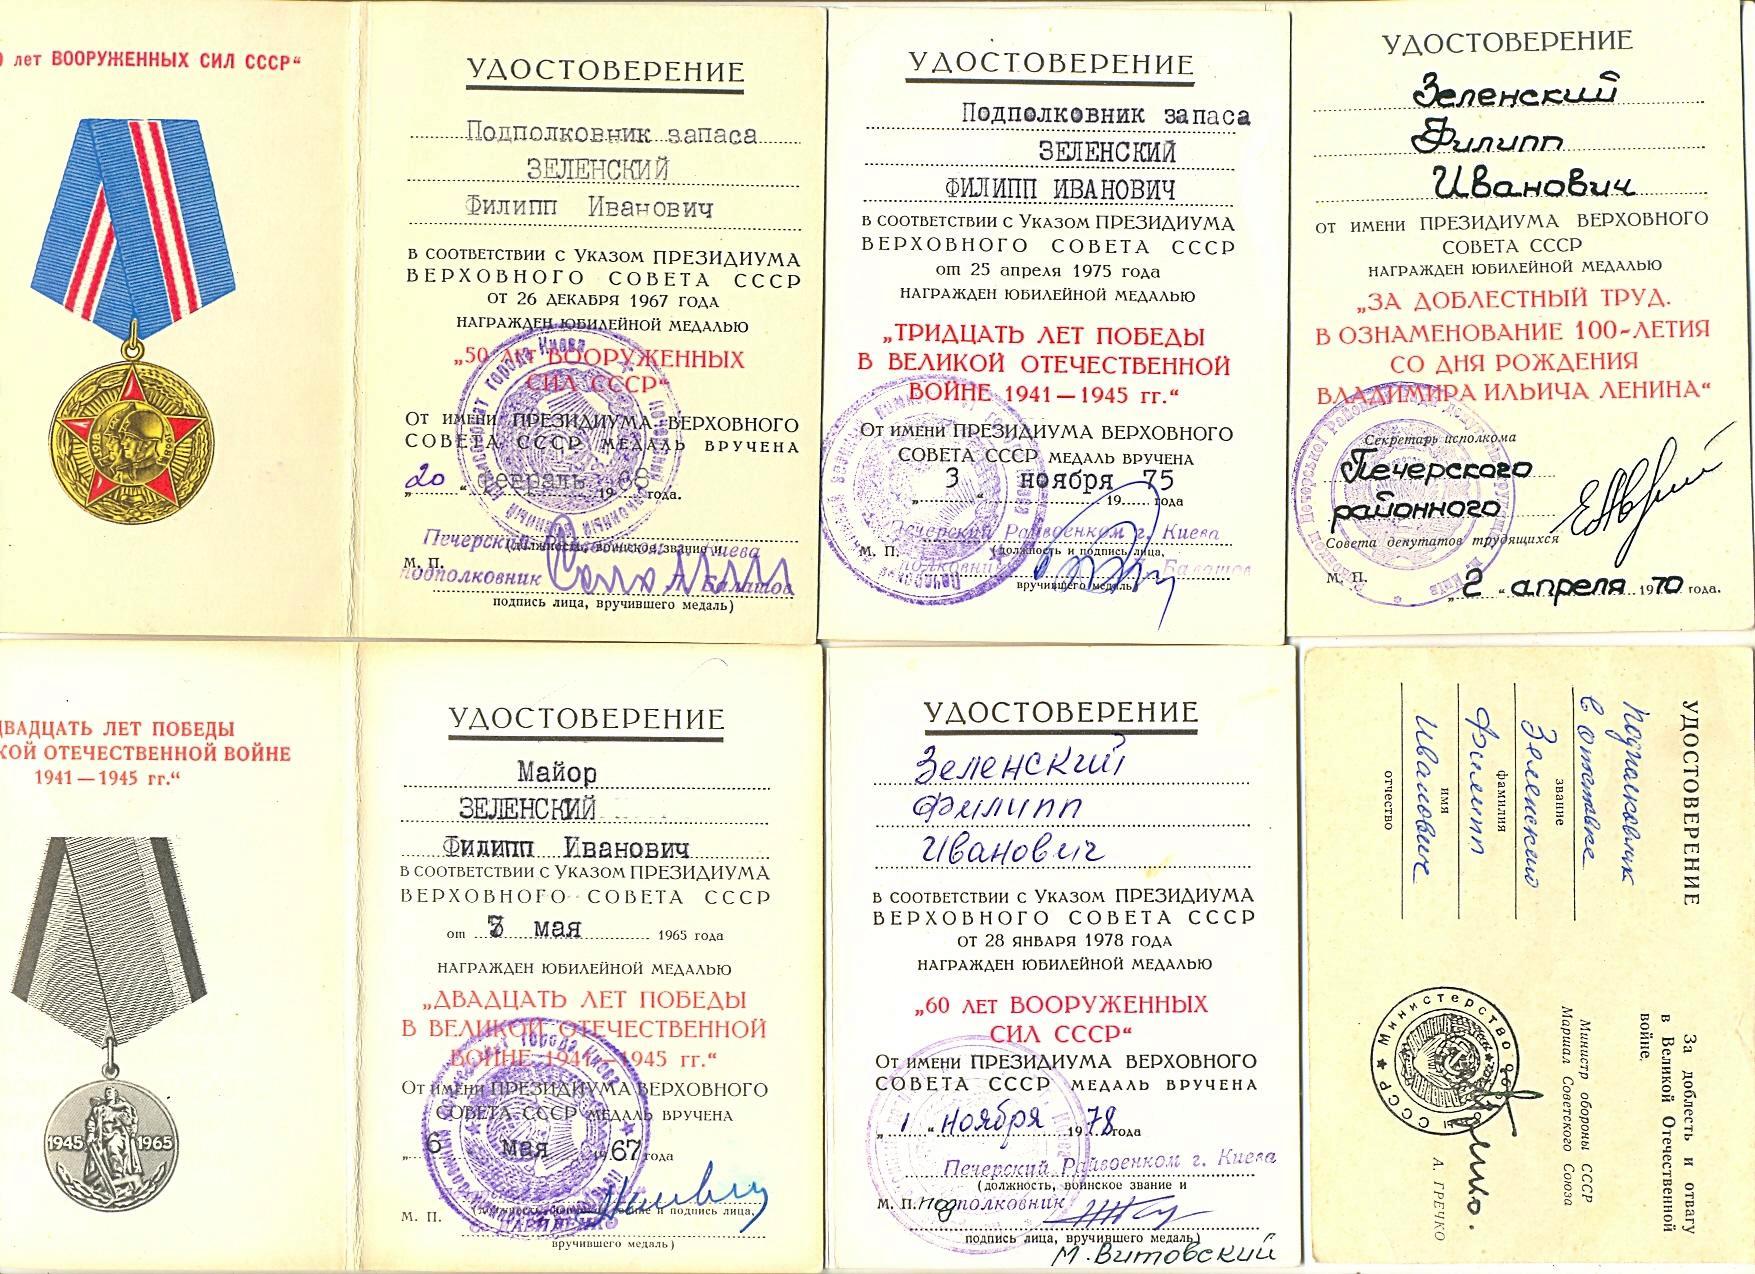 0 лет ВООРУЖЕННЫХ СИЛ СССР“
УДОСТОВЕРЕНИЕ
Подполковник запаса
ЗЕЛЕНСКИЙ
Филипп Иванович
В СООТВЕТСТВИИ С УКАЗОМ ПРЕЗИДИУМА
ВЕРХОВНОГО СОВЕТА СССР
ОТ 26 ДЕКАБРЯ 1967 ГОДА
НАГРАЖДЕН ЮБИЛЕЙНОЙ МЕДАЛЬЮ
„50 ЛЕТ ВООРУЖЕННЫХ
СИЛ СССР“
ОТ ИМЕНИ ПРЕЗИДИУМА ВЕРХОВНОГО
СОВЕТА СССР МЕДАЛЬ ВРУЧЕНА
„20“ февраль 1968 года.
Печерский Киева
(должность, воинское звание и
М. П.
подполковник Л. Балашов
подпись лица, вручившего медаль)
УДОСТОВЕРЕНИЕ
Подполковник запаса
ЗЕЛЕНСКИЙ
ФИЛИПП ИВАНОВИЧ
В СООТВЕТСТВИИ С УКАЗОМ ПРЕЗИДИУМА
ВЕРХОВНОГО СОВЕТА СССР
от 25 апреля 1975 года
НАГРАЖДЕН ЮБИЛЕЙНОЙ МЕДАЛЬЮ
„ТРИДЦАТЬ ЛЕТ ПОБЕДЫ
В ВЕЛИКОЙ ОТЕЧЕСТВЕННОЙ
ВОЙНЕ 1941—1945 гг.“
ОТ ИМЕНИ ПРЕЗИДИУМА ВЕРХОВНОГО
СОВЕТА СССР МЕДАЛЬ ВРУЧЕНА
„3“ ноября 1975 года
Печерский Райвоенком г. Киева
М. П. (должность и подпись лица,
подполковник Л. Балашов
вручившего медаль)
УДОСТОВЕРЕНИЕ
Зеленский
Филипп
Иванович
ОТ ИМЕНИ ПРЕЗИДИУМА ВЕРХОВНОГО
СОВЕТА СССР
НАГРАЖДЕН ЮБИЛЕЙНОЙ МЕДАЛЬЮ
„ЗА ДОБЛЕСТНЫЙ ТРУД.
В ОЗНАМЕНОВАНИЕ 100-ЛЕТИЯ
СО ДНЯ РОЖДЕНИЯ
ВЛАДИМИРА ИЛЬИЧА ЛЕНИНА“
Секретарь исполкома
Печерского
районного
Совета депутатов трудящихся
М. П.
„2“ апреля 1970 года.
ДВАДЦАТЬ ЛЕТ ПОБЕДЫ
КОЙ ОТЕЧЕСТВЕННОЙ ВОЙНЕ
1941—1945 гг.“
1945 1965
УДОСТОВЕРЕНИЕ
Майор
ЗЕЛЕНСКИЙ
Филипп Иванович
В СООТВЕТСТВИИ С УКАЗОМ ПРЕЗИДИУМА
ВЕРХОВНОГО СОВЕТА СССР
от 3 мая 1965 года
НАГРАЖДЕН ЮБИЛЕЙНОЙ МЕДАЛЬЮ
„ДВАДЦАТЬ ЛЕТ ПОБЕДЫ
В ВЕЛИКОЙ ОТЕЧЕСТВЕННОЙ
ВОЙНЕ 1941—1945 гг.“
ОТ ИМЕНИ ПРЕЗИДИУМА ВЕРХОВНОГО
СОВЕТА СССР МЕДАЛЬ ВРУЧЕНА
„6 мая 1967 года
звание и подпись лица,
М. П.
вручившего медаль)
УДОСТОВЕРЕНИЕ
Зеленский
Филипп
Иванович
В СООТВЕТСТВИИ С УКАЗОМ ПРЕЗИДИУМА
ВЕРХОВНОГО СОВЕТА СССР
ОТ 28 ЯНВАРЯ 1978 ГОДА
НАГРАЖДЕН ЮБИЛЕЙНОЙ МЕДАЛЬЮ
„60 ЛЕТ ВООРУЖЕННЫХ
СИЛ СССР“
ОТ ИМЕНИ ПРЕЗИДИУМА ВЕРХОВНОГО
СОВЕТА СССР МЕДАЛЬ ВРУЧЕНА
„1“ ноября 1978 года
Печерский Райвоенком г. Киева
(должность, воинское звание и
М. П. подполковник
подпись лица, вручившего медаль)
М. Витовский
УДОСТОВЕРЕНИЕ
Подполковник
в отставке
звание
Зеленский
фамилия
Филипп
имя
Иванович
отчество
За доблесть и отвагу
в Великой Отечественной
войне.
Министр обороны СССР
Маршал Советского Союза
А. ГРЕЧКО